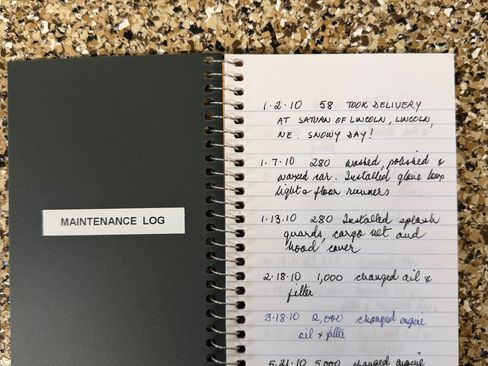 MAINTENANCE LOG
1·2·10 58 TOOK DELIVERY
AT SATURN OF LINCOLN, LINCOLN,
NE. SNOWY DAY!
1·7·10 280 washed, polished &
waxed car. Installed glove box
light & floor runners
1·13·10 280 Installed splash
guards, cargo net and
hood cover
2·18·10 1,000 changed oil &
filter
3·18·10 2,000 changed engine
oil & filter
5·21·10 5,000 changed engine